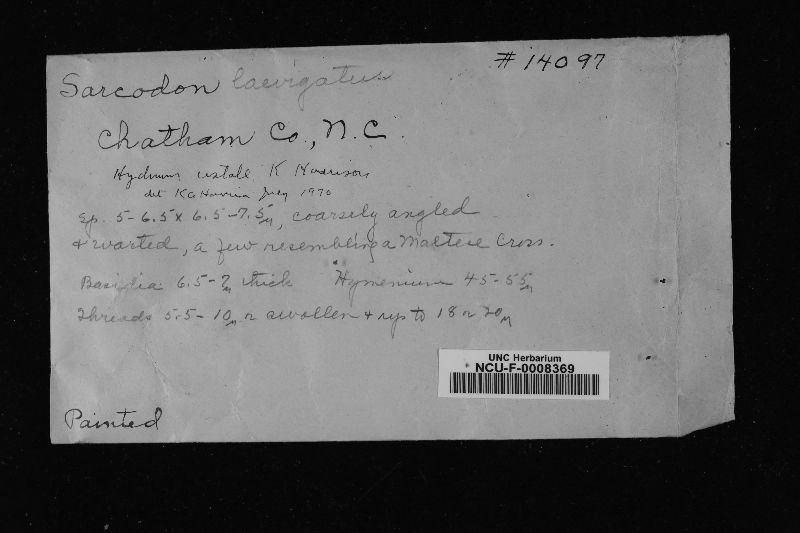 Sarcodon laevigatus
# 14097
Chatham Co., N.C.
Hydnum ustale K Harrison
det KA Harrison July 1970
Sp. 5-6.5 x 6.5-7.5µ, coarsely angled
& warted, a few resembling a Maltese Cross.
Basidia 6.5-7µ thick Hymenium 45-55µ
Threads 5.5-10µ swollen & up to 18 20µ
UNC Herbarium
NCU-F-0008369
Painted